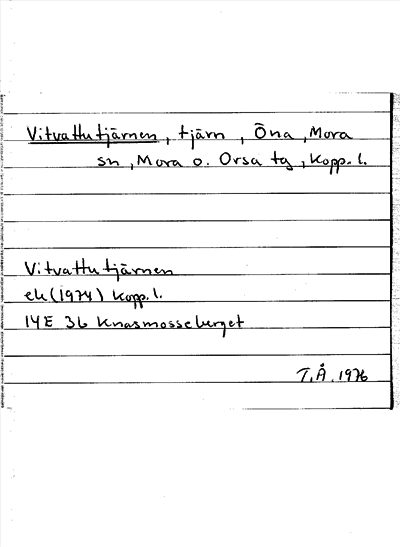 Vitvattutjärnen, tjärn, Öna, Mora
sn, Mora o. Orsa tg, Kopp. l.
Vitvattutjärnen
ek (1974) Kopp. l.
14E 3b Knasmosseberget
T.Å. 1976